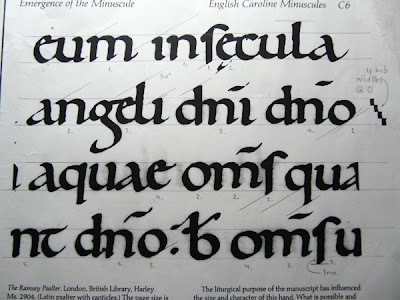 Emergence of the Minuscule English Caroline Minuscules C6
eum inſecula
4 nib
widths
@ 0°
30°
angeli dñi dño
aquae om̃ſ qua
nt dño: ƀ om̃ſu
Inw.
The Ramsey Psalter. London, British Library, Harley
Ms. 2904. (Latin psalter with canticles.) The page size is
The liturgical purpose of the manuscript has influenced
the size and character of this hand. What is possible and